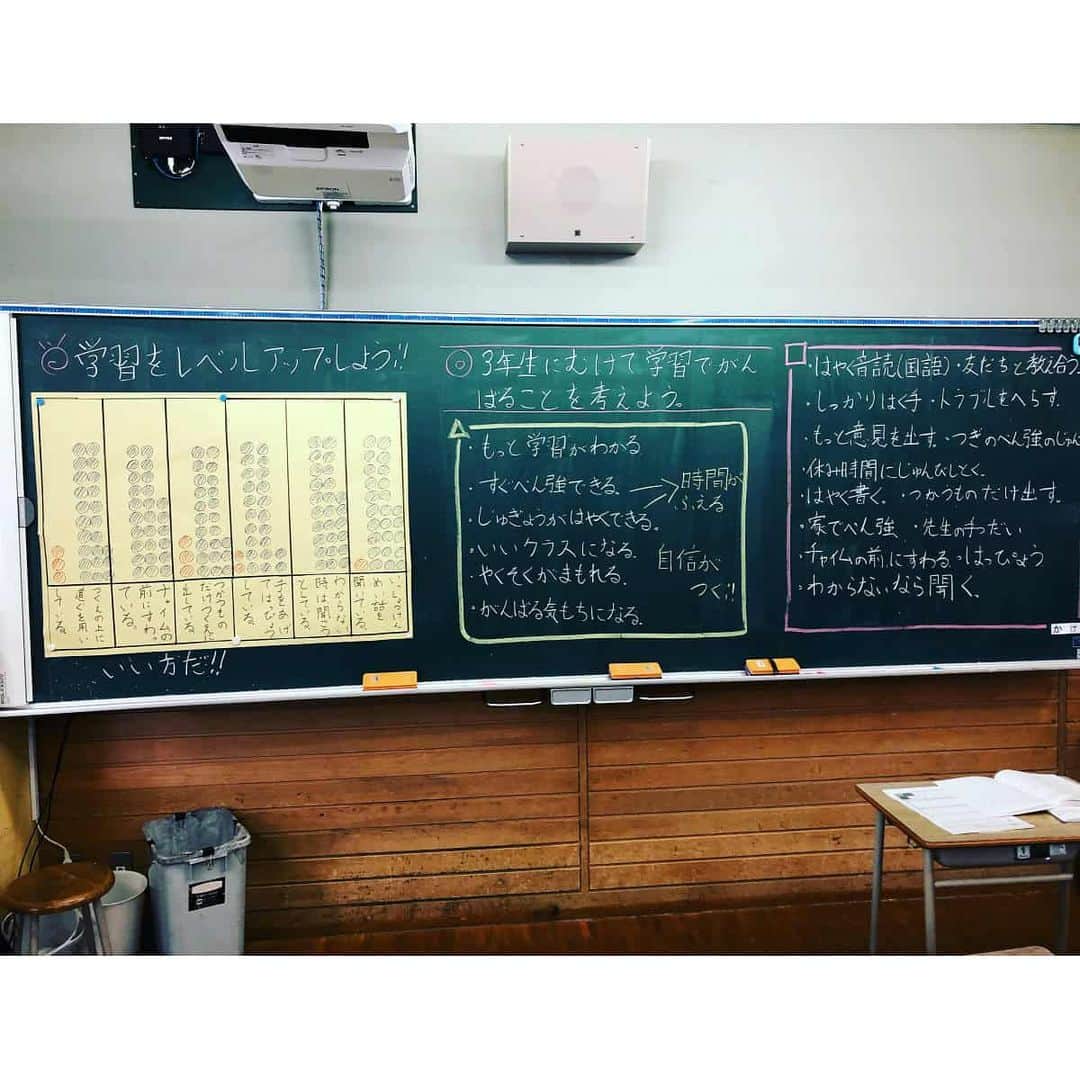 EPSON
学習をレベルアップしよう!!
いっしょうけん
めい話を
聞いている。
わからない
時は、聞こう
としている。
手をあげ
てはっぴょう
している。
つかうもの
だけつくえに
出している。
チャイムの
前にすわっ
ている。
つくえの上に
道ぐを用い
している。
いい方だ!!
◎3年生にむけて学習でがん
ばることを考えよう。
・もっと学習がわかる
・すぐべん強できる。
時間が
ふえる
・じゅぎょうがはやくできる。
・いいクラスになる。
・やくそくがまもれる。
自信が
つく!!
・がんばる気もちになる。
・はやく音読(国語)・友だちと教え合う
・しっかりはく手・トラブルをへらす。
・もっと意見を出す。・つぎのべん強のじゅん
・休み時間にじゅんびしとく。
・はやく書く。・つかうものだけ出す。
・家でべん強・先生の手つだい
・チャイムの前にすわる・はっぴょう
・わからないなら聞く。
かけ